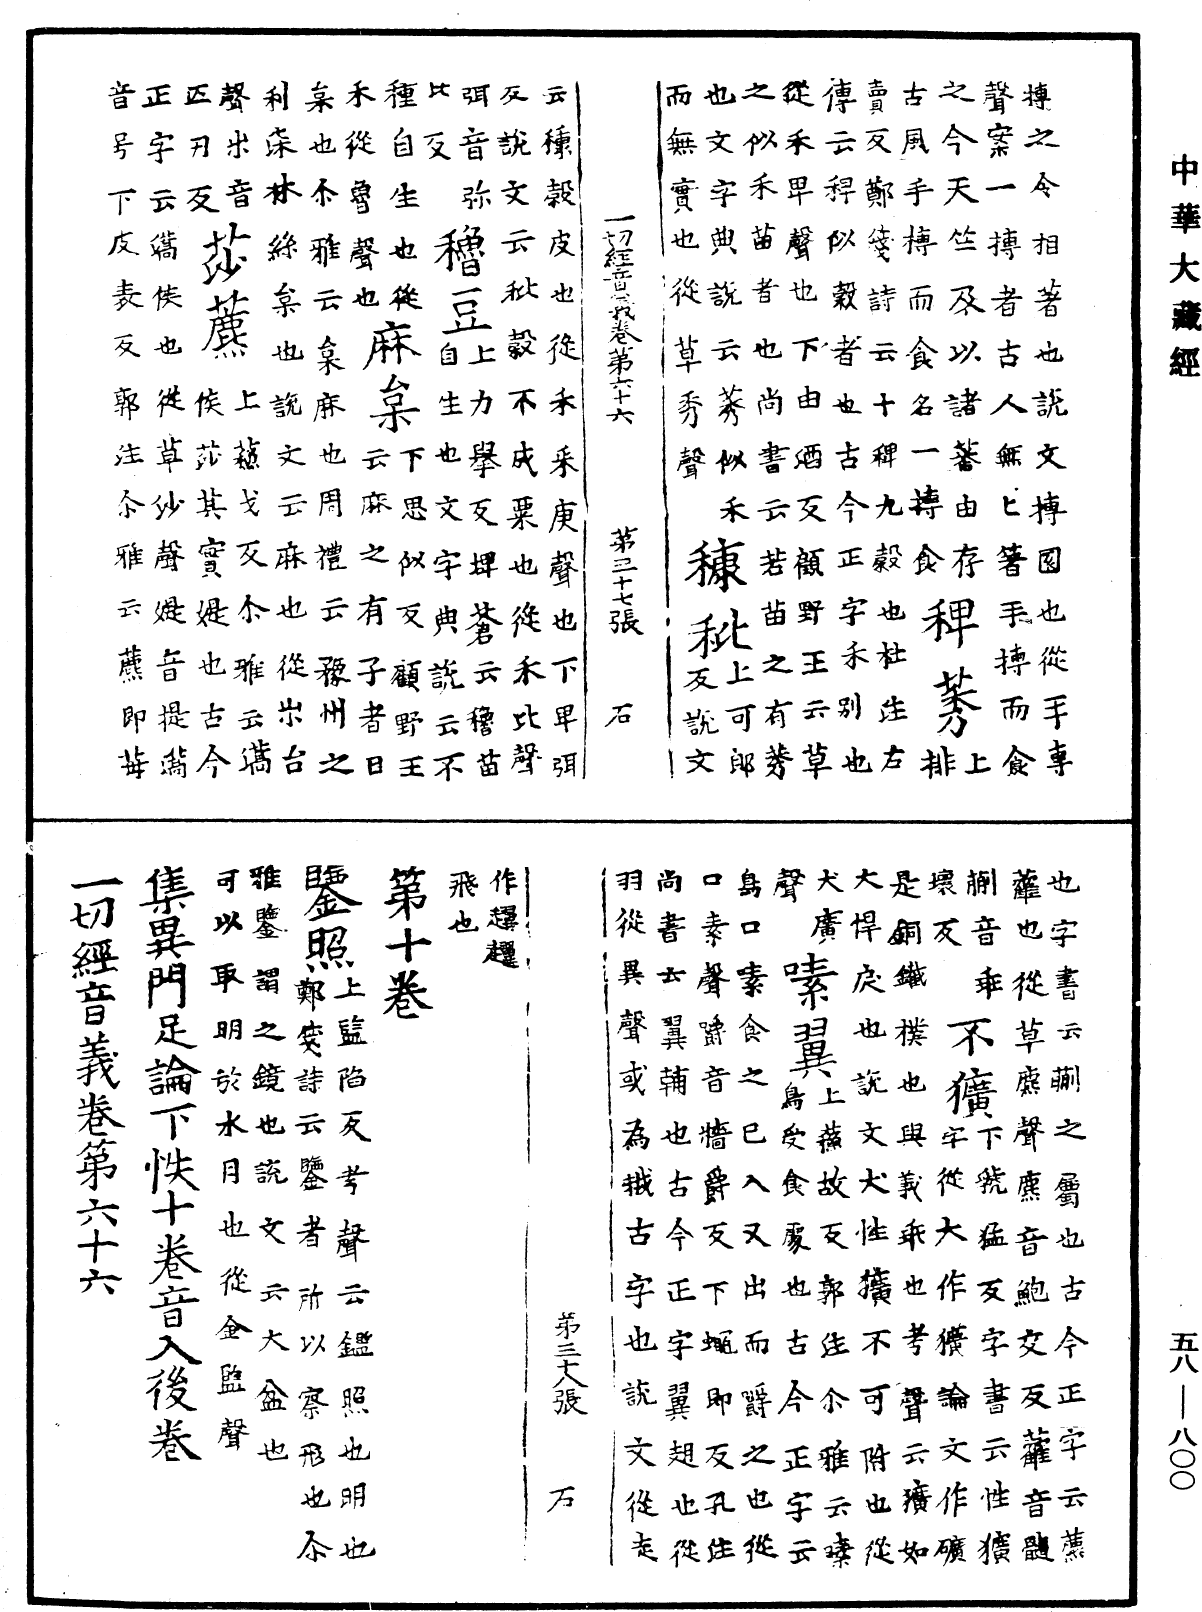 中華大藏經
摶之令相著也說文摶圜也從手專
聲案一摶者古人無匕箸手摶而食
之今天竺及以諸蕃由存
古風手摶而食名一摶食
稗莠
上排
賣反鄭箋詩云十稗九穀也杜注左
傳云稗似穀者也古今正字禾別也
從禾卑聲也下由酒反顧野王云草
之似禾苗者也尚書云若苗之有莠
也文字典說云莠似禾
而無實也從草秀聲
穅秕
上可郎
反說文
一切經音義卷第六十六 第三十七張 石
云穅穀皮也從禾釆庚聲也下卑弭
反說文云秕穀不成粟也從禾比聲
弭音弥
比反
穭豆
上力舉反埤蒼云穭苗
自生也文字典說云不
種自生也從
禾從魯聲也
麻枲
下思似反顧野王
云麻之有子者曰
枲也尒雅云枲麻也周禮云豫州之
利柒林絲枲也說文云麻也從𣎳台
聲𣎳音
匹刃反
莎藨
上蘓戈反尒雅云蒿
侯莎其實媞也古今
正字云蒿侯也從草沙聲媞音提蒿
音号下皮表反郭注尒雅云藨即莓
也字書云蒯之屬也古今正字云藨
蓷也從草麃聲麃音鮑交反蓷音髓
蒯音乖
壞反
不獷
下虢猛反字書云性獷
字從大作獷論文作礦
是銅鐵樸也與義乖也考聲云獷如
大悍戾也說文犬性獷不可附也從
犬廣
聲
嗉翼
上蘓故反郭注尒雅云嗉
鳥受食處也古今正字云
鳥口嗉食之已入又出而嚼之也從
口素聲嚼音牆爵反下蠅即反孔注
尚書云翼輔也古今正字翼翅也從
羽從異聲或為𦐂古字也說文從走
第三十八張 石
作趩趯
飛也
第十卷
鑒照
上監陷反考聲云鑑照也明也
鄭箋詩云鑒者所以察形也尒
雅鑒謂之鏡也說文云大盆也
可以取明於水月也從金監聲
集異門足論下帙十卷音入後卷
一切經音義卷第六十六
五八—八〇〇